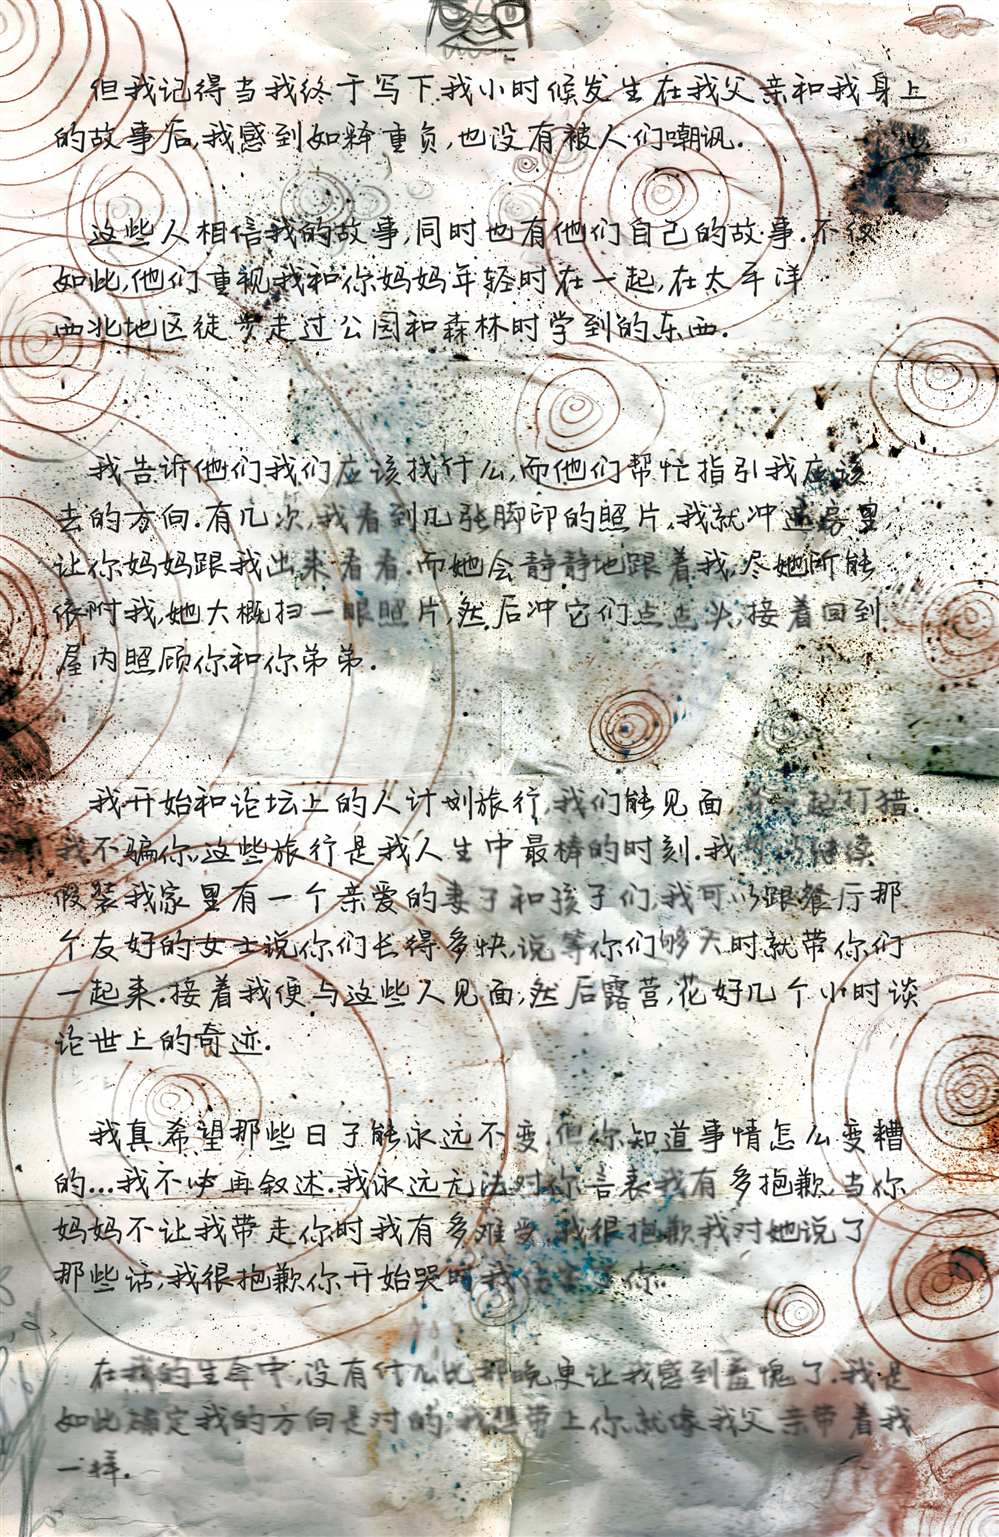 但我记得当我终于写下我小时候发生在我父亲和我身上
的故事后,我感到如释重负,也没有被人们嘲讽.
这些人相信我的故事,同时也有他们自己的故事.不仅
如此,他们重视我和你妈妈年轻时在一起,在太平洋
西北地区徒步走过公园和森林时学到的东西.
我告诉他们我们应该找什么,而他们帮忙指引我应该
去的方向.有几次,我看到几张脚印的照片,我就冲进房里,
让你妈妈跟我出来看看.而她会静静地跟着我,尽她所能
依附我,她大概扫一眼照片,然后冲它们点点头,接着回到
屋内照顾你和你弟弟.
我开始和论坛上的人计划旅行,我们能见面,一起打猎.
我不骗你,这些旅行是我人生中最棒的时刻.我继续
假装我家里有一个亲爱的妻子和孩子们,我可以跟餐厅那
个友好的女士说你们长得多快,说等你们够大时就带你们
一起来.接着我便与这些人见面,然后露营,花好几个小时谈
论世上的奇迹.
我真希望那些日子能永远不变,但你知道事情怎么变糟
的...我不必再叙述.我永远无法对你言表我有多抱歉,当你
妈妈不让我带走你时我有多难受,我很抱歉我对她说了
那些话,我很抱歉你开始哭时我你.
在我的生命中,没有什么比那晚更让我感到羞愧了.我是
如此确定我的方向是对的,我想带上你,就像我父亲带着我
一样.